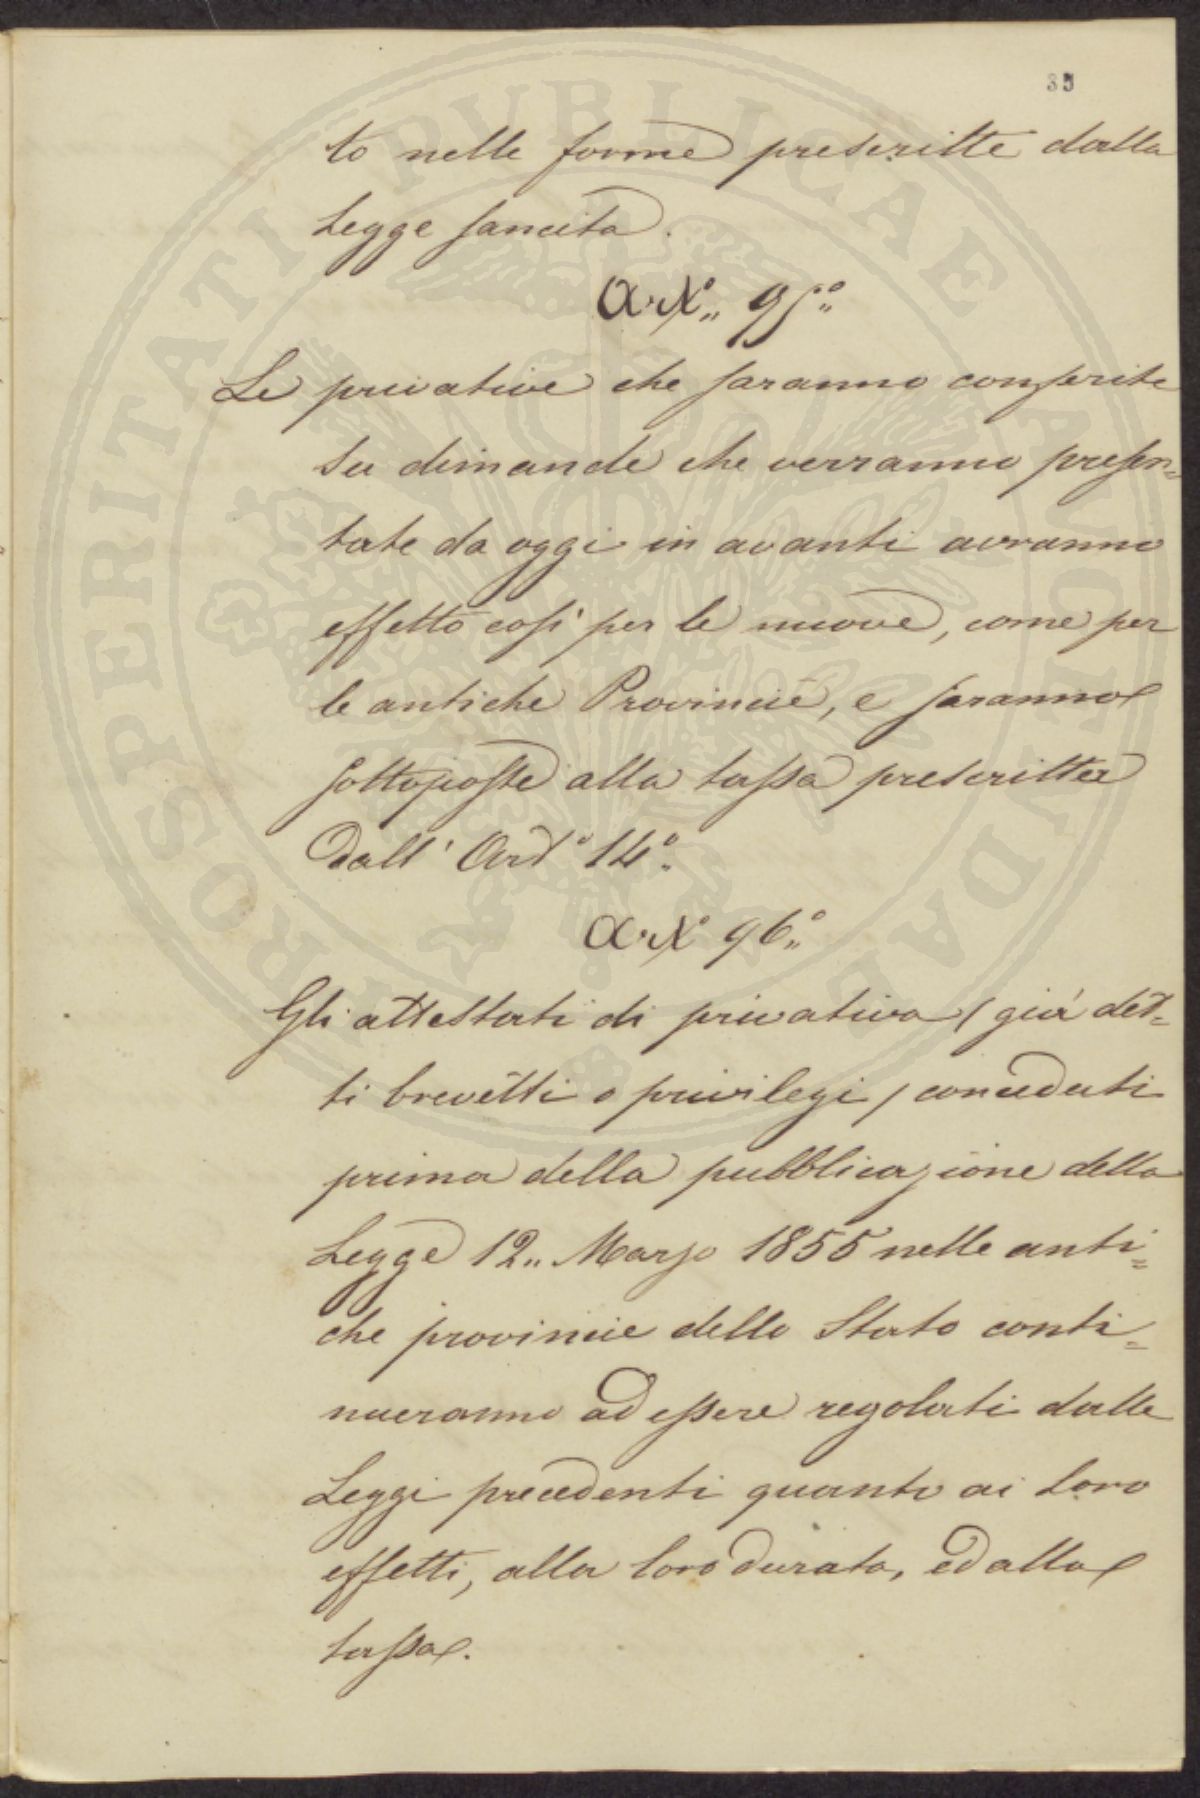 35
to nelle forme prescritte dalla
Legge sancita.
Art.° 95.°
Le privative che saranno conferite
su dimande che verranno presen=
tate da oggi in avanti avranno
effetto così per le nuove, come per
le antiche Provincie, e saranno
sottoposte alla tassa prescritta
dall' Art.° 14.°
Art.° 96.°
Gli attestati di privativa (già det=
ti brevetti o privilegi) conceduti
prima della pubblicazione della
Legge 12 Marzo 1855 nelle anti=
che provincie dello Stato conti=
nueranno ad essere regolati dalle
Leggi precedenti quanto ai loro
effetti, alla loro durata, ed alla
tassa.
PROSPERITATI PUBLICAE AUGENDAE